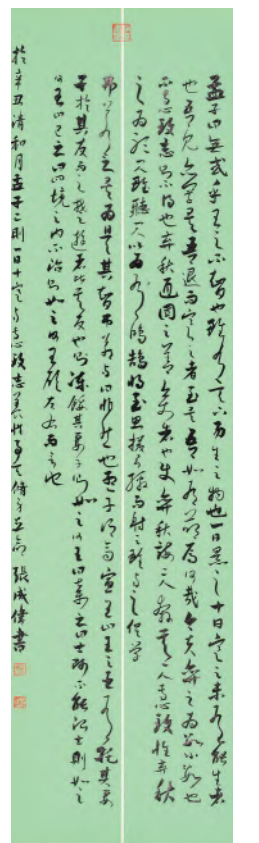 孟子曰無或乎王之不智也雖有天下易生之物也一日暴之十日寒之未有能生者
也吾見亦罕矣吾退而寒之者至矣吾如有萌焉何哉今夫弈之為數小數也
不專心致志則不得也弈秋通國之善弈者也使弈秋誨二人弈其一人專心致惟弈秋
之為聽一人雖聽一人以為有鴻鵠將至思援弓繳而射之雖與之俱學
弗若之矣為是其智弗若與曰非然也孟子謂齊宣王曰王之臣有託其妻
子於其友而之楚遊者比其反也則凍餒其妻子則如之何王曰棄之曰士師不能治士則如之
何王曰已之曰四境之內不治則如之何王顧左右而言他
於辛丑清和月孟子二則一日十寒與專心致志張成偉書